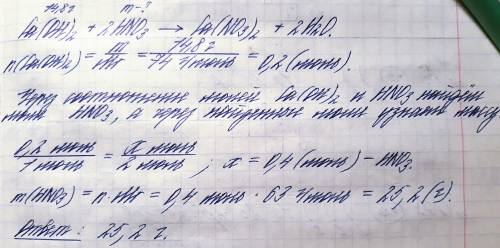 14,8 г m-?
Ca(OH)₂ + 2HNO₃ → Ca(NO₃)₂ + 2H₂O.
n(Ca(OH)₂) = m/Mr = 14,8 г/74 г/моль = 0,2 (моль).
Через соотношение молей Ca(OH)₂ и HNO₃ найдём
моли HNO₃, а через найденные моли узнаем массу
0,2 моль/1 моль = x моль/2 моль ; x = 0,4 (моль) - HNO₃.
m(HNO₃) = n · Mr = 0,4 моль · 63 г/моль = 25,2 (г).
Ответ: 25,2 г.